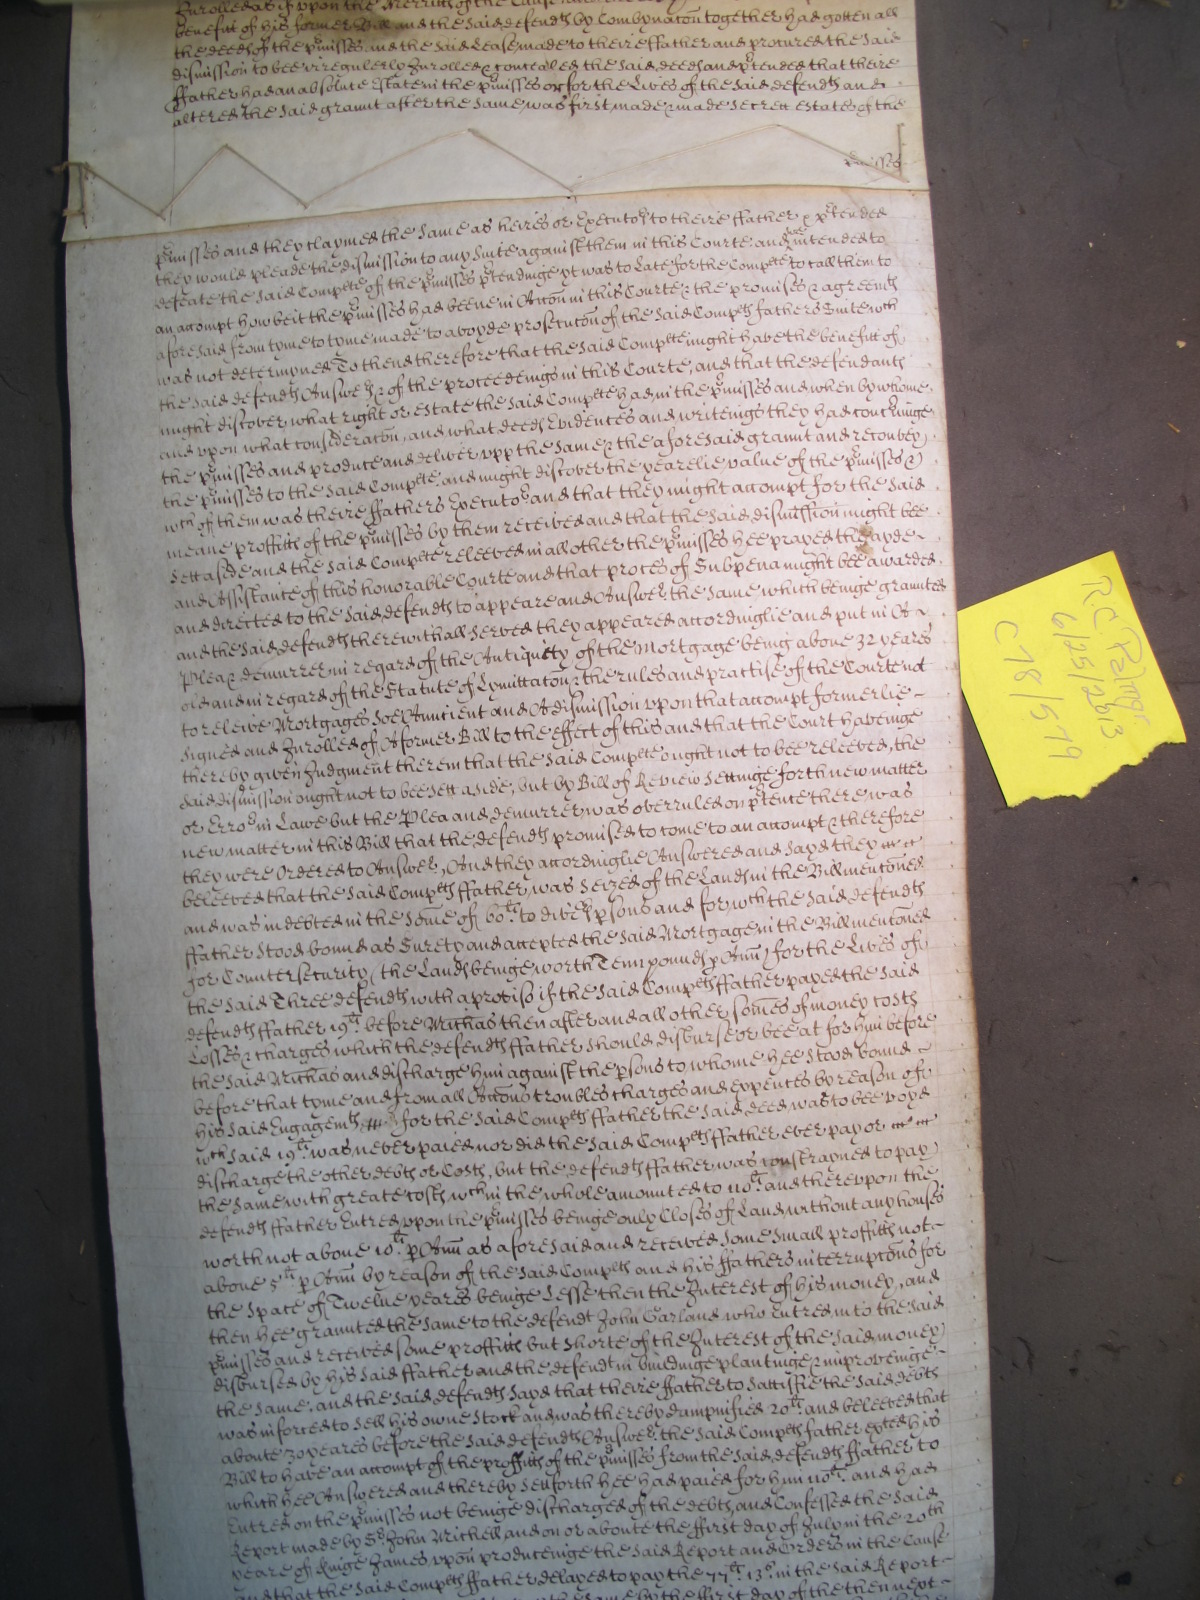 Enrolled as if upon the Merritts of the Cause
benefitt of his former Bill and the said defendts by Combynacon together had gotten all
the deeds of the p'misses and the said Lease made to theire ffather and procured the said
dismission to bee irregulerly Inrolled & concealed the said deeds and p'tended that theire
ffather had an absolute estate in the p'misses or for the Lives of the said defendts and
altered the said graunt after the same was first made & made secrett estates of the
p'misses
p'misses and they claymed the same as heires or Executors to theire ffather & p'tended
they would pleade the dismission to any suite against them in this Courte and soe intended to
defeate the said Complte of the p'misses p'tendinge yt was to Late for the Complte to call them to
an accompt howbeit the p'misses had beene in Accon in this Courte & the promises & agreemts
aforesaid from tyme to tyme made to avoyde prosecucon of the said Complts fathers Suite wch
was not determyned To thend therefore that the said Complte might have the benefitt of
the said defendts Answers & of the proceedeings in this Courte, and that the defendants
might discover what right or estate the said Complte had in the p'misses and when by whome
and upon what consideracon, and what deeds Evidences and writeings they had concerninge
the p'misses and produce and deliver upp the same & the aforesaid graunt and reconvey
the p'misses to the said Complte, and might discover the yearelie value of the p'misses &
wch of them was theire ffathers Executor and that they might accompt for the said
meane proffitts of the p'misses by them received and that the said dismission might bee
sett aside and the said Complte releeved in all other the p'misses hee prayed the ayde
and Assistance of this honorable Courte and that proces of Subpena might bee awarded
and directed to the said defendts to appeare and Answer the same which beinge graunted
and the said defendts therewithall served they appeared accordinglie and put in A
Plea & demurrer in regard of the Antiquity of the Mortgage being above 32 yeares
old and in regard of the Statute of Lymittacon & the rules and practise of the Court not
to releive Mortgages soe Auncient and A dismission upon that accompt formerlie
signed and Inrolled of A former Bill to the effect of this and that the Court haveinge
thereby given Judgment therein that the said Complte ought not to bee releeved, the
said dismission ought not to bee sett aside, but by Bill of Review settinge forth new matter
or Error in Lawe but the Plea and demurrer was overruled on p'tence there was
new matter in this Bill that the defendts promised to come to an accompt & therefore
they were Ordered to Answer, And they accordinglie Answered and sayd they
beleeved that the said Complts ffather was seized of the Lands in the Bill mentioned
and was indebted in the some of 60li to divers p'sons and for wch the said defendts
ffather stood bound as Surety and accepted the said Mortgage in the Bill mentioned
for Countersecurity (the Lands beinge worth Tenn pounds p Ann) for the Lives of
the said Three defendts with a proviso if the said Complts ffather payed the said
defendts ffather 19li before Michas then after and all other somes of money costs
Losses & charges which the defendts ffather should disburse or bee at for him before
the said Michas and discharge him against the p'sons to whome hee stood bound
before that tyme and from all Accons troubles charges and expences by reason of
his said Engagemts for the said Complts ffather the said deed was to bee voyd
wch said 19li was never paied nor did the said Complts ffather ever pay or
discharge the other debts or Costs, but the defendts ffather was constrayned to pay
the same with greate costs wch in the whole amounted to 110li and thereupon the
defendts ffather Entred upon the p'misses beinge only Closes of Land without any houses
worth not above 10li p Ann as aforesaid and received some small proffitts not
above 5li p Ann by reason of the said Complts and his ffathers interruptions for
the space of Twelve yeares beinge Lesse then the Interest of his money, and
then hee graunted the same to the defendt John Garland who Entred into the said
p'misses and received some proffitts but shorte of the Interest of the said money
disbursed by his said ffather and the defendt in buildinge plantinge & improveinge
the same, and the said defendts sayd that theire ffather to sattisfie the said debts
was inforced to sell his owne Stock and was thereby dampnified 20li and beleeved that
aboute 30 yeares before the said defendts Answer, the said Complts father ex'ted his
Bill to have an accompt of the proffitts of the p'misses from the said defendts ffather to
which hee Answered and thereby sett forth hee had paied for him 110li and had
Entred on the p'misses not beinge discharged of the debts, and Confessed the said
Report made by Sr John Michell and on or aboute the ffirst day of July in the 20th
yeare of Kinge James upon produceinge the said Report and Orders in the Cause
and that the said Complts ffather delayed to pay the 77li 13s in the said Report
the same by the ffirst day of the then next
R.C. Palmer
6/25/2013
C78/579